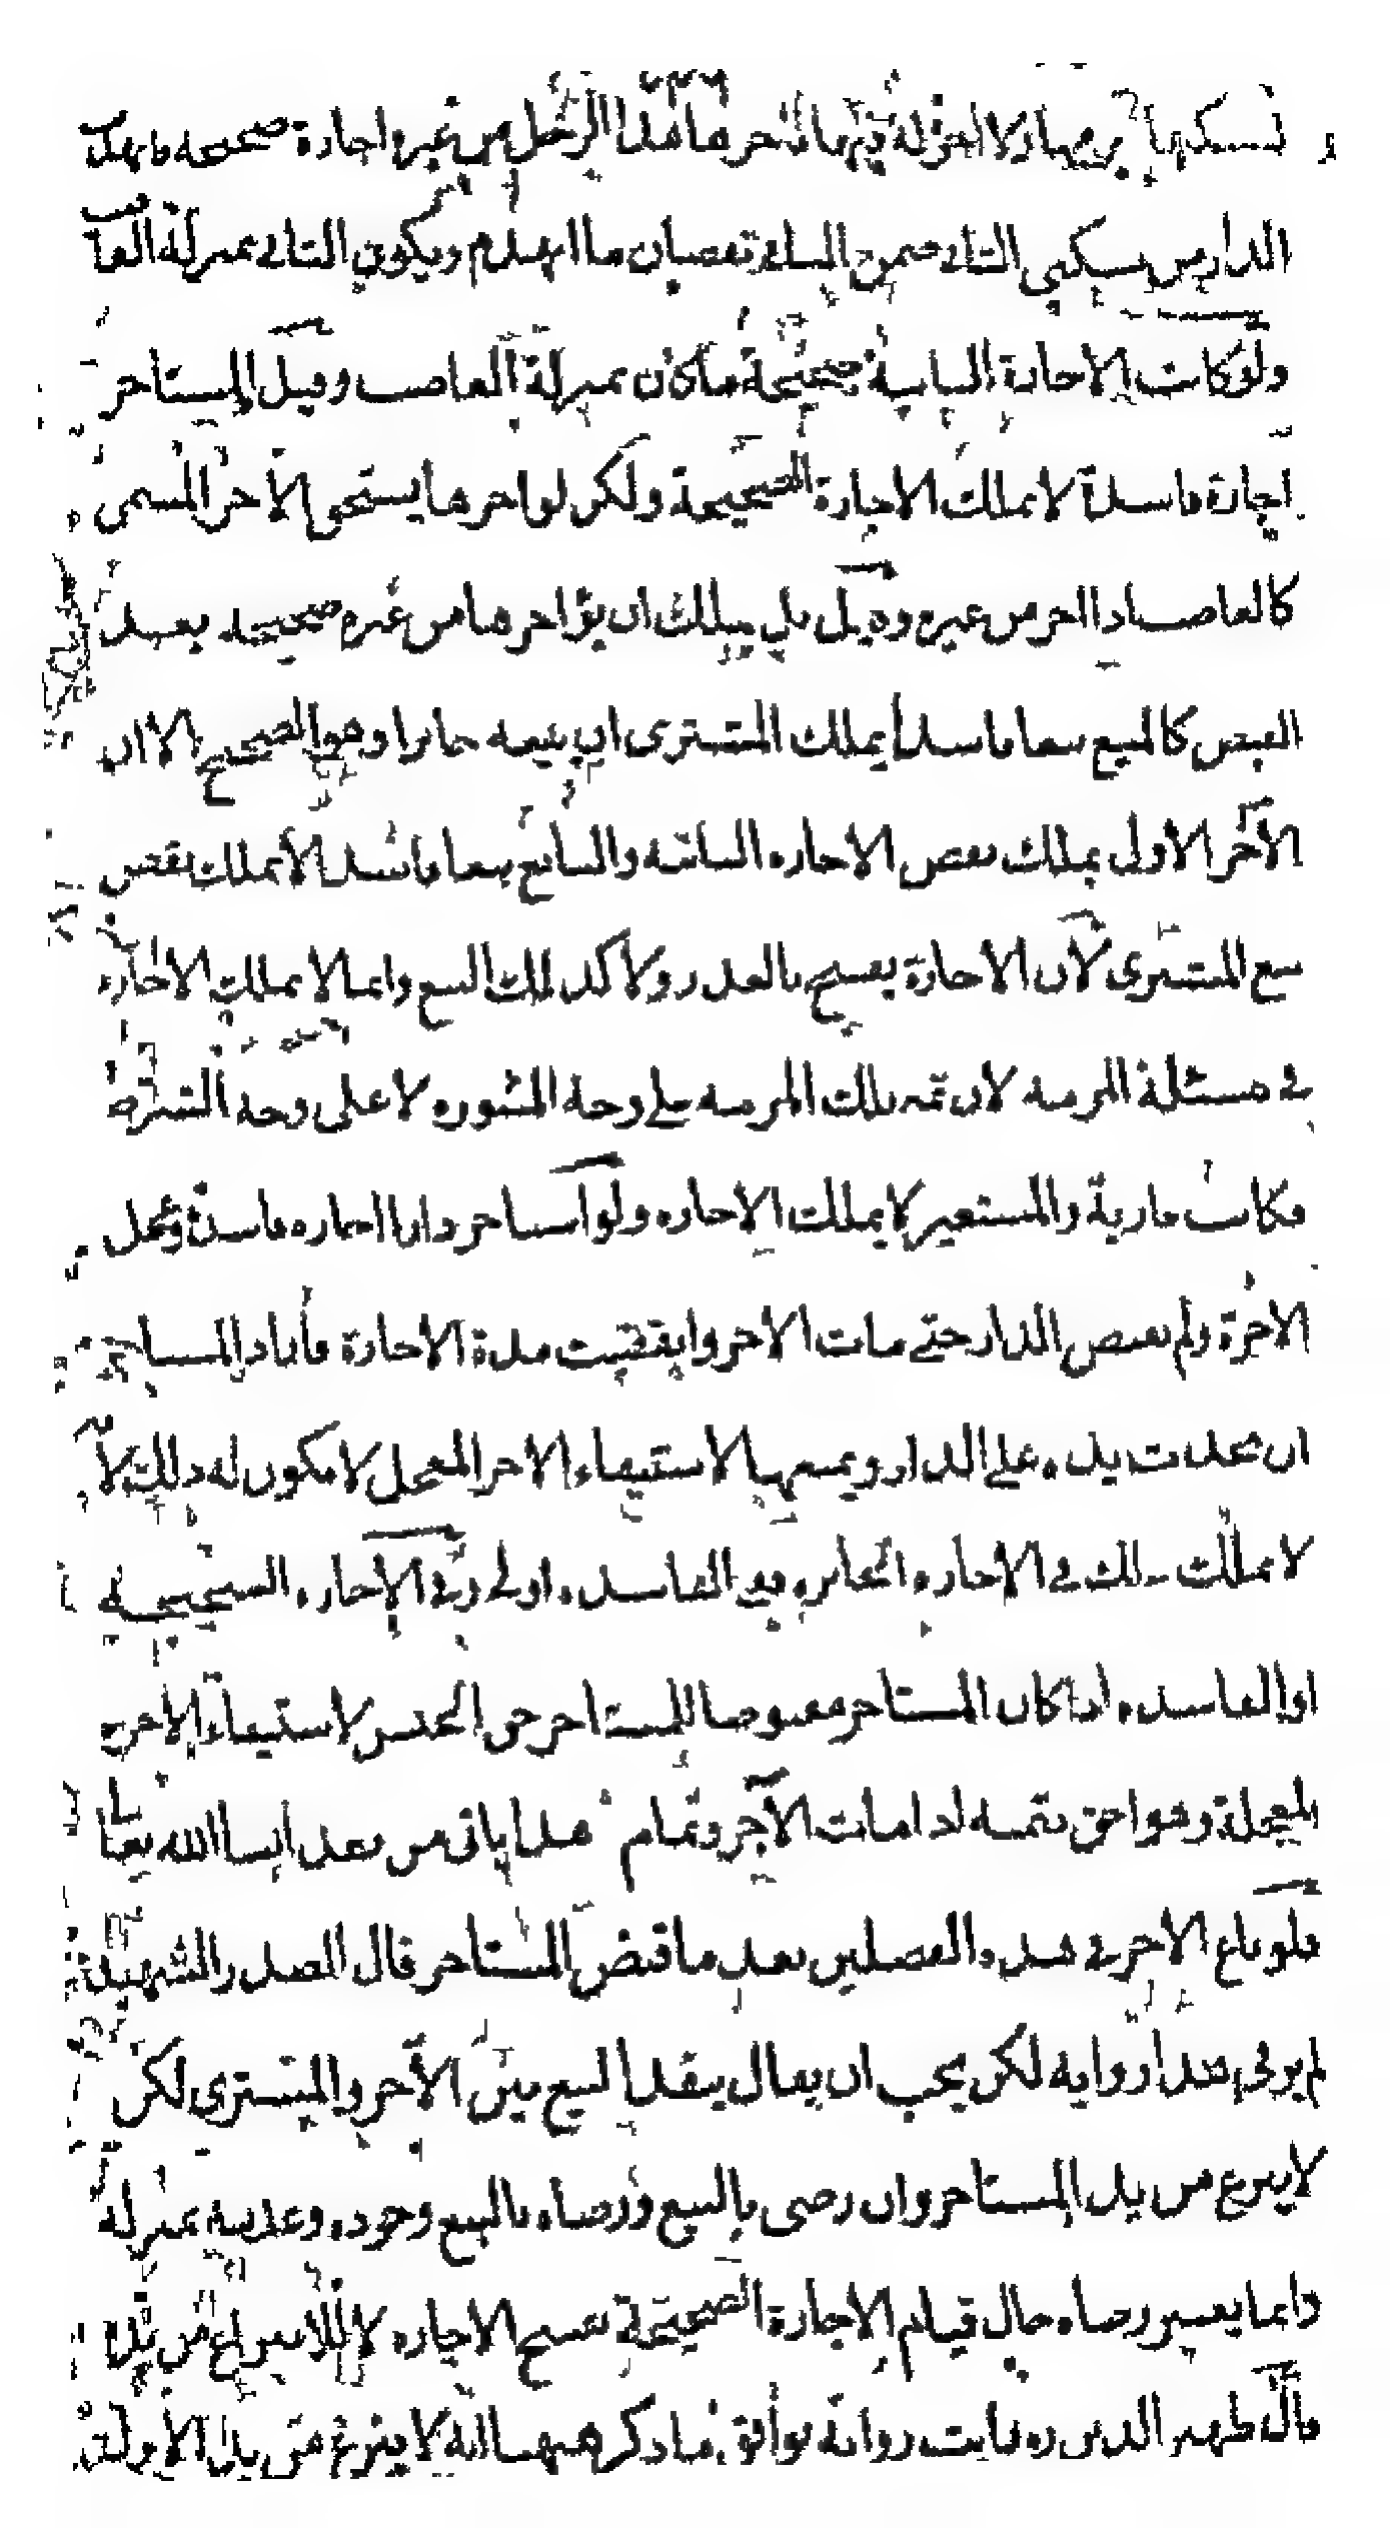 يسكنها يرمها ولا اجر له فيها فآجر ها هذا الرجل من غيره اجارة صحيحه فانهدم
الدار من سكنى الثاني ضمن الساكن نقصان ما انهدم ويكون الثاني بمنزلة الغاصب
ولو كانت الاجارة الثانية صحيحة ما كان بمنزلة الغاصب وقيل المستاجر
اجارة فاسدة لا يملك الاجارة الصحيحة ولكن لو اجرها يستحق الاجر المسمى
كالغاصب اذا اجر من غيره وقيل بل يملك ان يؤاجرها من غيره صحيحه بعد
القبض كالمبيع بيعا فاسدا يملك المشترى ان يبيعه جايزا وهو الصحيح الا ان
الآخر الاول يملك نقض الاجاره الثانيه والبايع بيعا فاسدا لا يملك نقض
بيع المشترى لان الاجارة يفسخ بالعذر ولا كذلك البيع وانما لا يملك الاجارة
في مسئلة المرمة لان ثمه تلك المرمه على وجه المشوره لا على وجه الشرط
فكانت عارية والمستعير لا يملك الاجاره ولو استاجر دارا اجاره فاسدة وعجل
الاجرة ولم يقبض الدار حتى مات الآجر وانقضت مدة الاجارة فاراد المستاجر
ان يحدث يده على الدار ويمنعها لاستيفاء الاجر المعجل لا يكون له ذلك لانه
لا يملك ذلك في الاجاره الجايزه ففي الفاسده اولى وفي الاجاره الصحيحه
او الفاسده اذا كان المستاجر مقبوضا للمستاجر حق الحبس لاستيفاء الاجرة
المعجلة وهو احق بثمنه اذا مات الآجر وتمام هذا ياتى من بعد انشا الله تعالى
فلو باع الاجر في هذه الفصلين بعد ما قبض المستاجر قال الصدر الشهيد
لم يرو في هذا رواية لكن يجب ان يقال ينفذ البيع بين الآجر والمشترى لكن
لا ينزع من يد المستاجر وان رضى بالبيع ورضاه بالبيع وجوده وعدمه بمنزلة
وانما يعتبر رضاه حال قيام الاجارة الصحيحة لفسخ الاجاره لا للانتزاع من يده
قال ظهير الدين ره رايت رواية توافق ما ذكر ههنا انه لا ينزع من يده الا